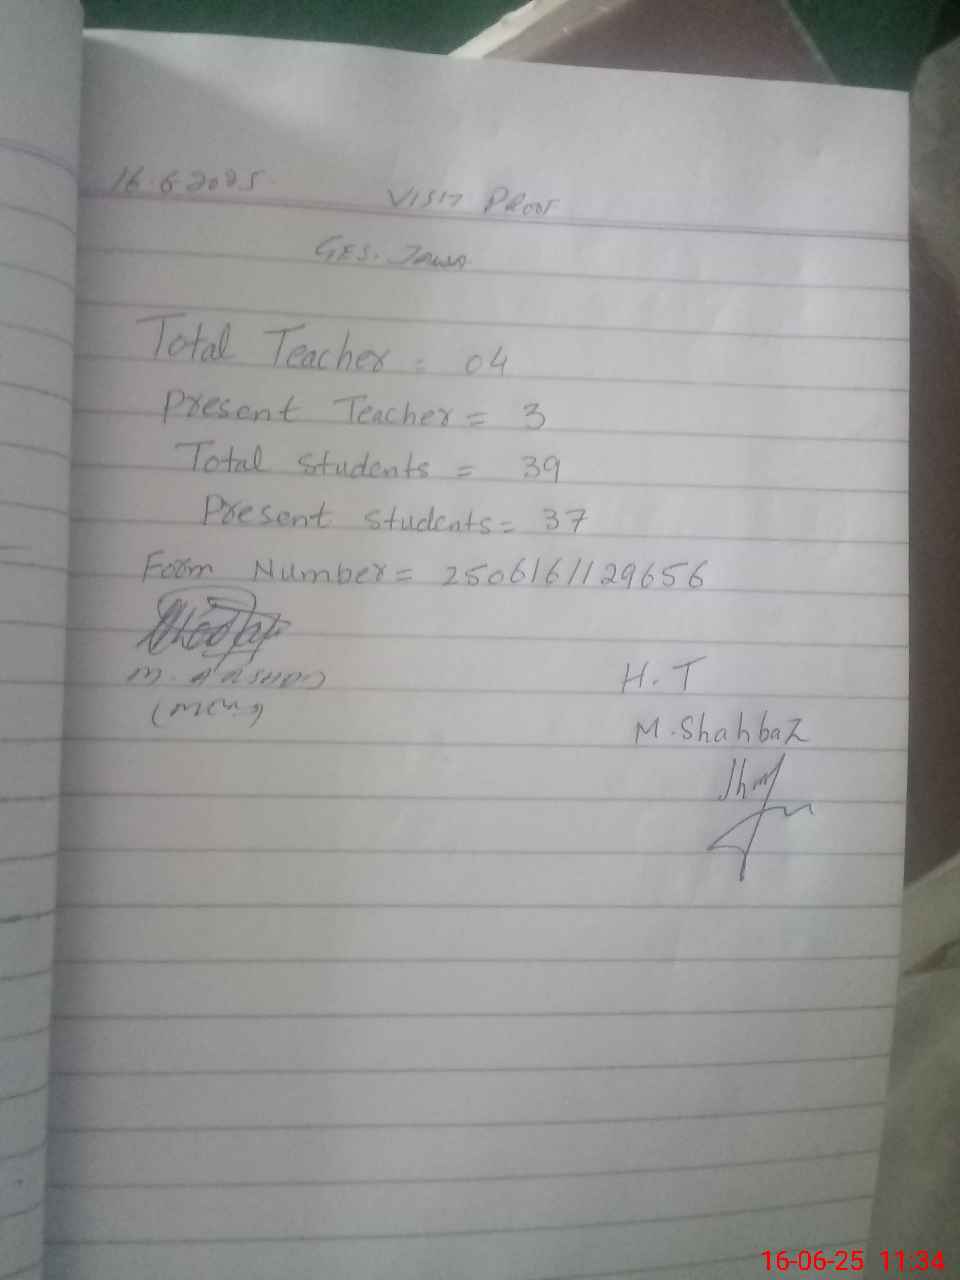 16.6.2025
VISIT PROOF
GES.
Total Teacher = 04
Present Teacher = 3
Total students = 39
Present students = 37
Form Number = 2506161129656
M.
H.T
M. Shahbaz
16-06-25 11:34